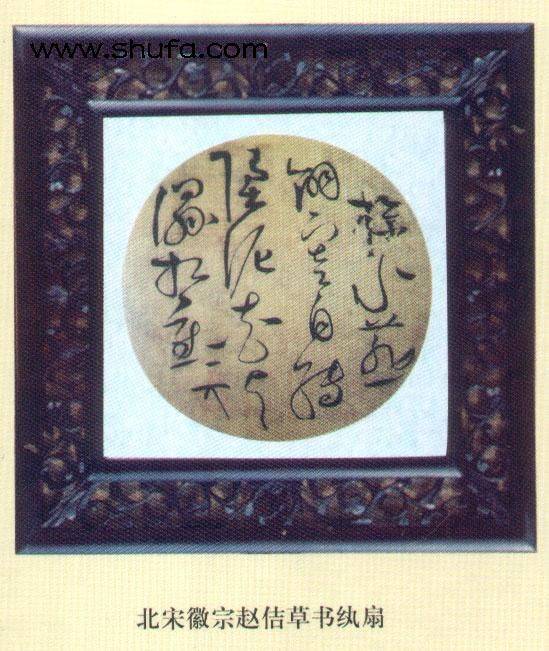 www.shufa.com
掠水燕
翎寒自轉
墮泥花片
濕相重
北宋徽宗赵佶草书纨扇